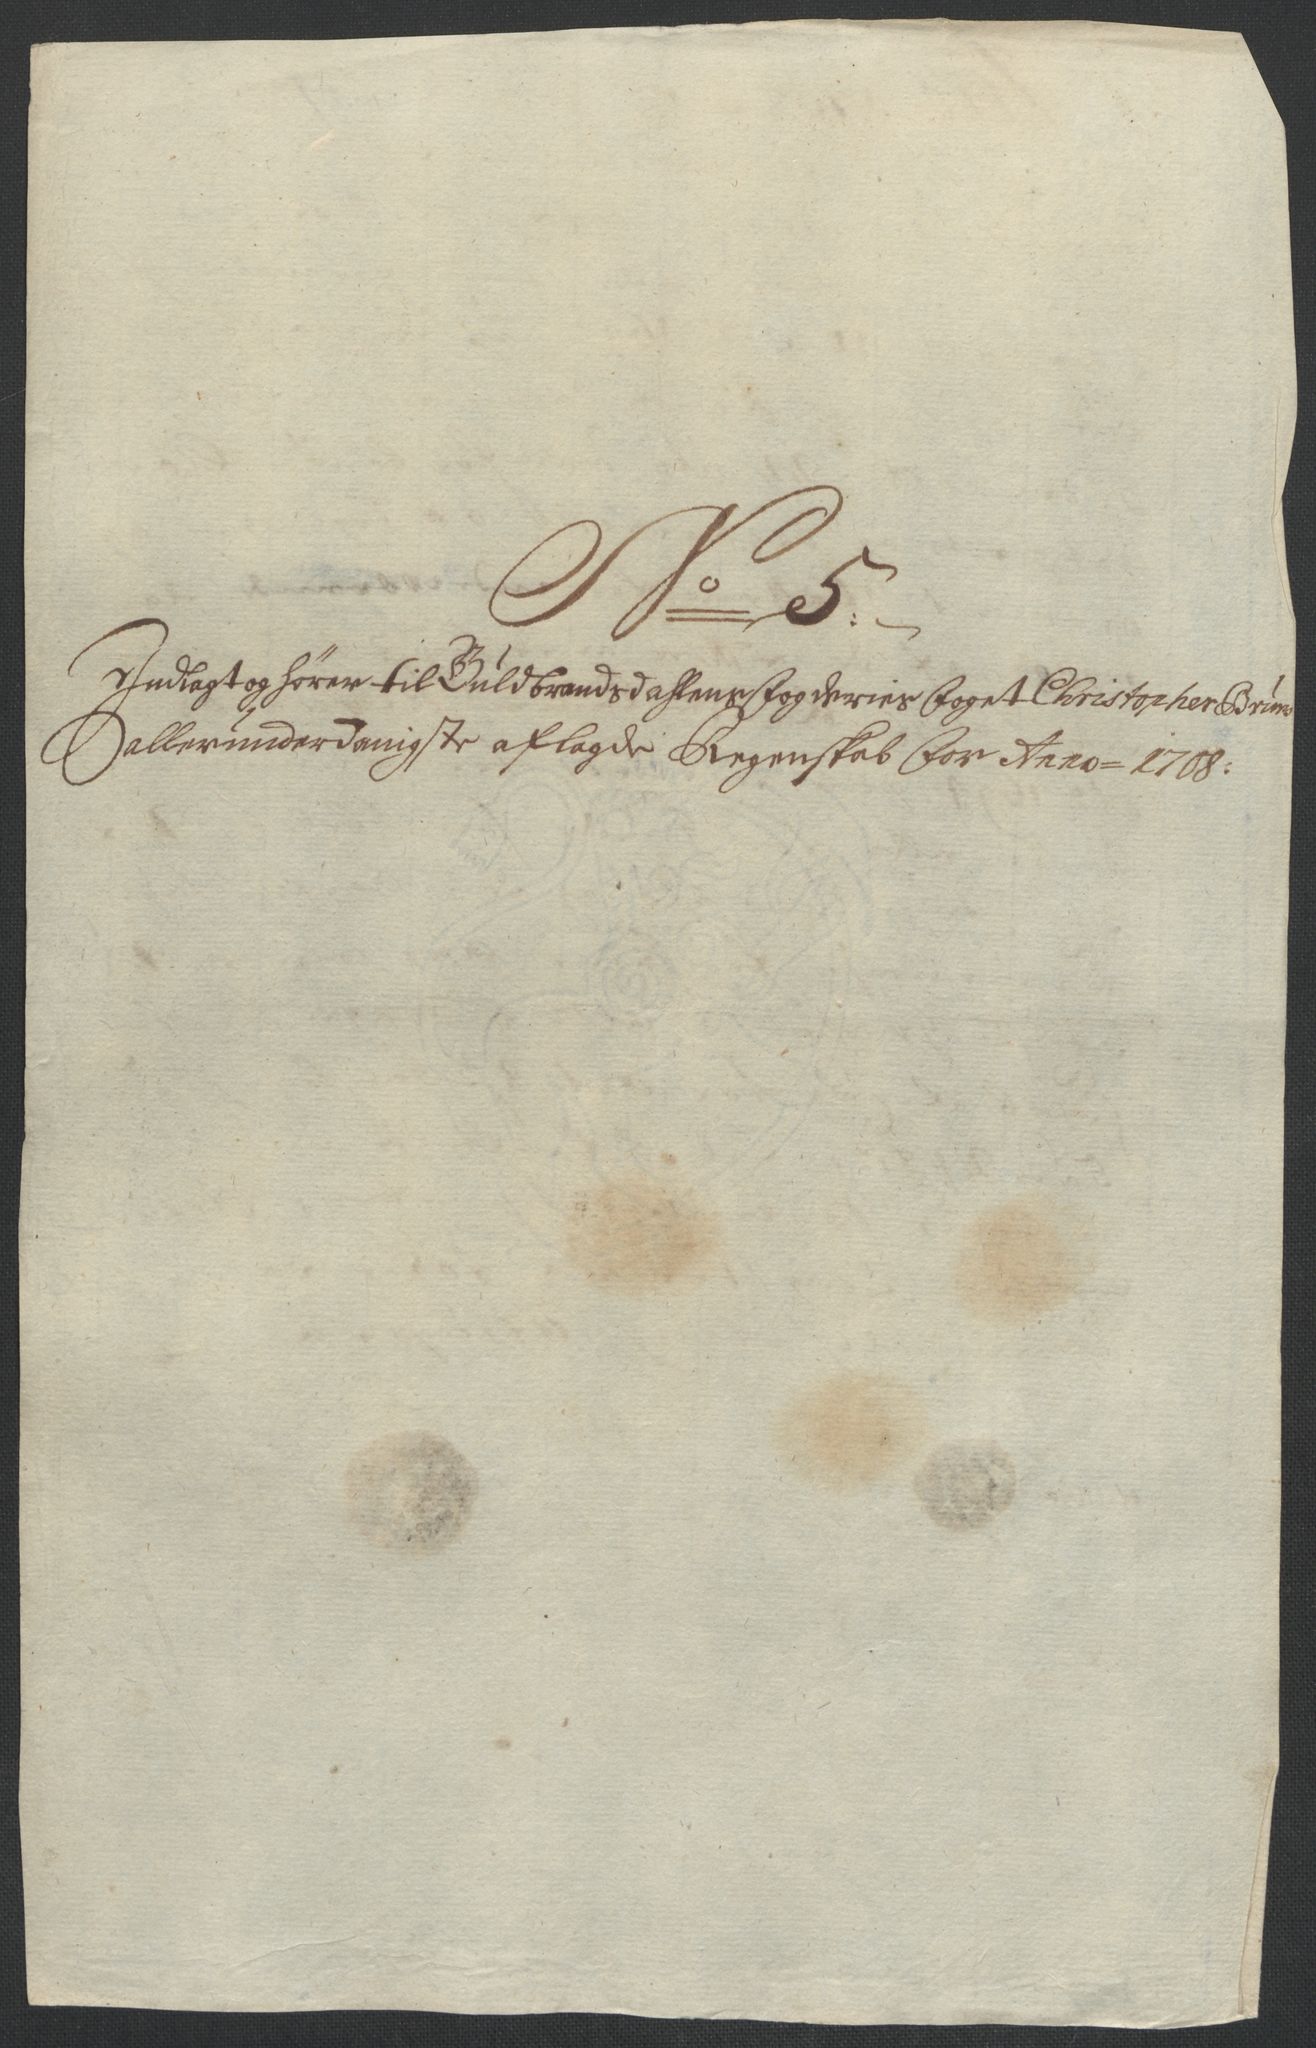 No 5:
Indlagt og hører til Guldbrandsdahlens fogderies foget Christopher Brun
allerunderdanigste aflagde Regenskab for Anno= 1708: